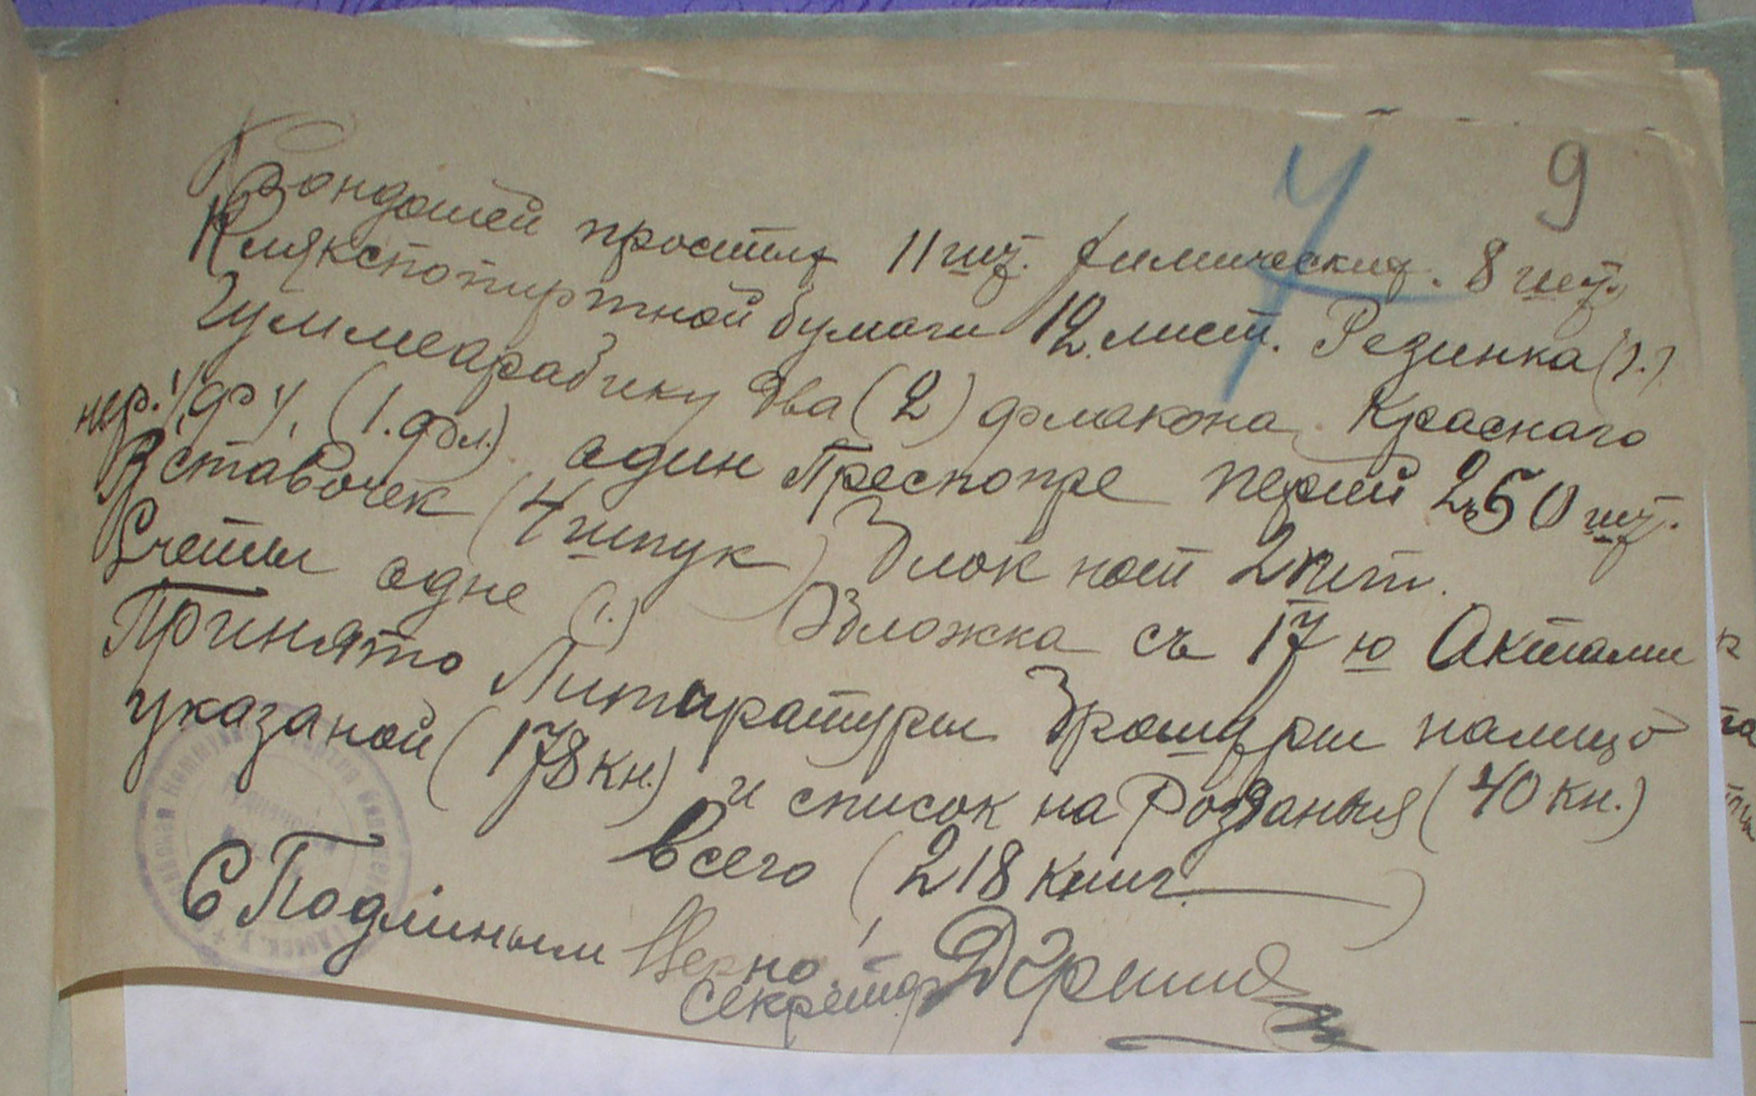 9
Корондашей простых 11 шт. Химических. 8 шт.
Клякспопиртной бумаги 12 лист. Резинка (1.)
Гуммеарабику два (2) флакона. Краснаго
чер. 1/фу, (1. фл.) один Преспопре перьей 250 шт.
Вставочек (4 штук) Блок нот 2 шт.
Счеты одне (1.) Обложка съ 17ю Актами
Принято Литаратуры Брошуры налицо
указаной (178 кн.) и список на Розданыя (40 кн.)
Всего (218 книг.)
С Подлиным Верно:
Секретар